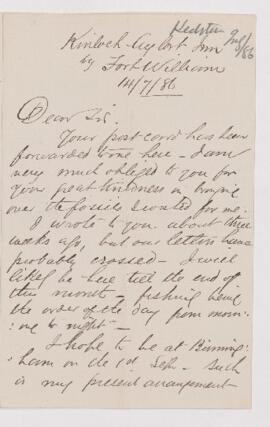 Kidston Jul/86
Kinloch Aylort Inn
by Fort William
14/7/86
Dear Sir
Your post card has been
forwarded to me here - I am
very much obliged to you for
your great kindness in
over the fossils I wanted for me.
I wrote to you about three
weeks ago, but our letters have
probably crossed - I will
likely be here till the end of
this month - fishing being
the order of the day from morn:
:ing to night -
I hope to be at Birming:
:ham on the 1st Sept. - such
is my present arrangement